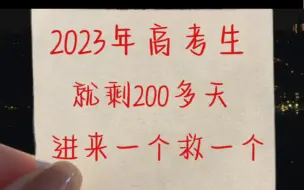 2023年高考生
就剩200多天
进来一个救一个